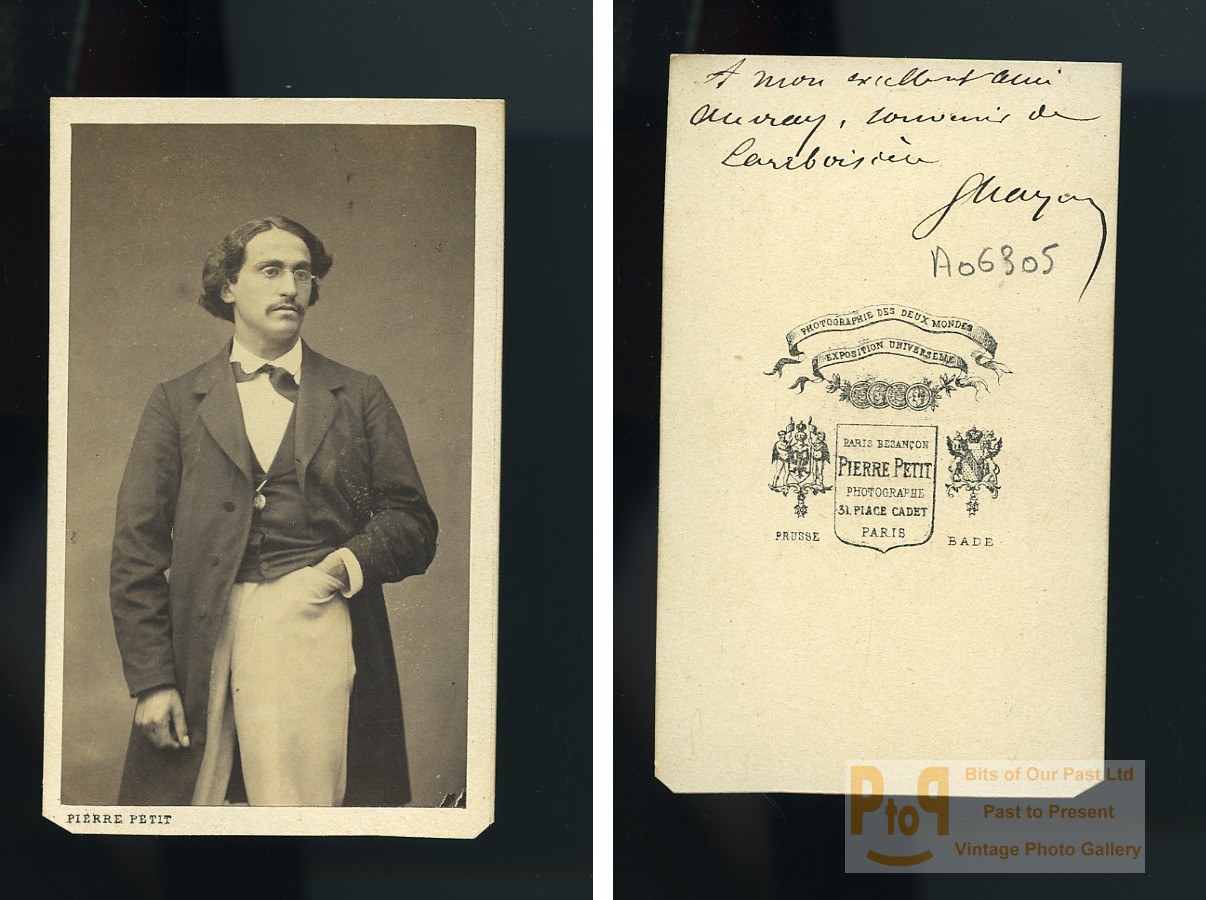 PIERRE PETIT
A mon excellent ami
souvenir de
Lariboisière
A06305
PHOTOGRAPHIE DES DEUX MONDES
EXPOSITION UNIVERSELLE
PARIS BESANÇON
PIERRE PETIT
PHOTOGRAPHE
31, PLACE CADET
PARIS
PRUSSE
BADE
PtoP
Bits of Our Past Ltd
Past to Present
Vintage Photo Gallery